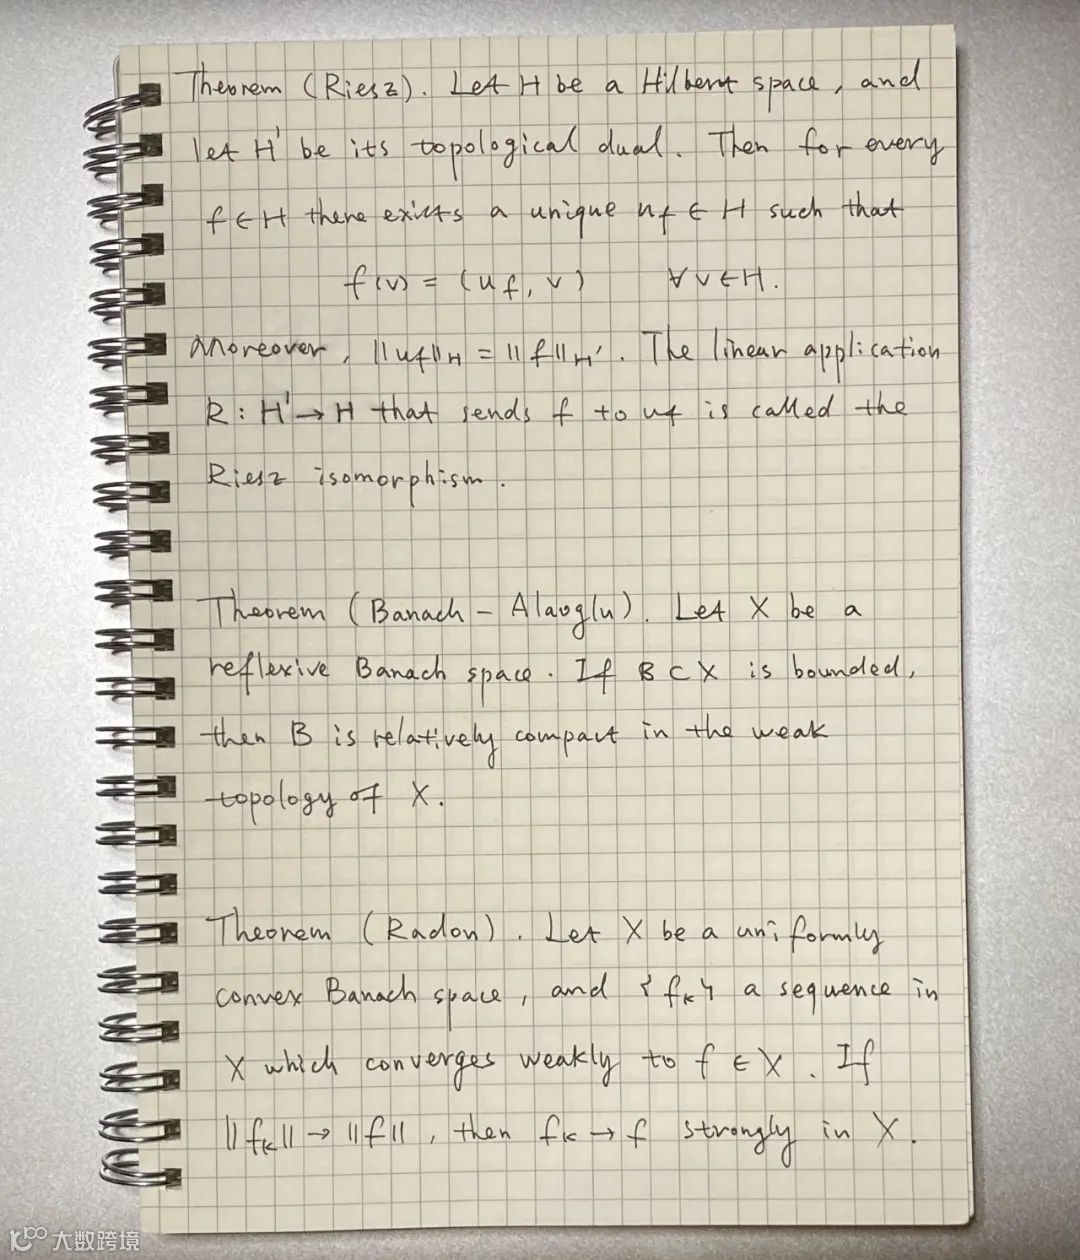 Theorem (Riesz). Let H be a Hilbert space, and
let H' be its topological dual. Then for every
f ∈ H there exists a unique u_f ∈ H such that
f(v) = (u_f, v)    ∀ v ∈ H.
Moreover, ||u_f||_H = ||f||_H'. The linear application
R : H' → H that sends f to u_f is called the
Riesz isomorphism.
Theorem (Banach - Alaoglu). Let X be a
reflexive Banach space. If B ⊂ X is bounded,
then B is relatively compact in the weak
topology of X.
Theorem (Radon). Let X be a uniformly
convex Banach space, and {f_k} a sequence in
X which converges weakly to f ∈ X. If
||f_k|| → ||f||, then f_k → f strongly in X.
大数跨境